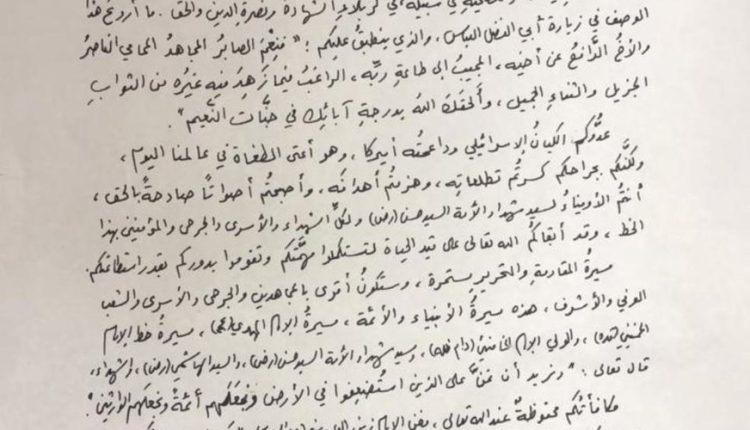 في سبيله في كربلاء الشهادة ونصرة الدين والحق. ما أروع هذا
الوصف في زيارة أبي الفضل العباس، والذي ينطبق عليكم: "فنِعْمَ الصابرُ المجاهدُ المحامي الناصرُ
والأخُ الدَّافعُ عن أخيه، المجيبُ الى طاعةِ ربِّه، الراغبُ فيما زَهِدَ فيه غيرُه من الثوابِ
الجزيلِ والثناءِ الجميل، وألحقَكَ اللهُ بدرجةِ آبائِك في جنَّات النَّعيم".
عدُّوكم الكيانُ الإسرائيلي وداعمتُه أميركا، وهو أعتى الطغاة في عالمنا اليوم،
ولكنَّكم بجراحكم كسرتُم تطلعاتِه، وهزمتُم أهدافَه، وأصبحتُم أصواتاً صادحةً بالحق،
أنتمُ الأوفياءُ لسيد شهداء الأمة السيد حسن (رض) ولكلِّ الشهداء والأسرى والجرحى والمؤمنين بهذا
الخط، وقد أبقاكُم الله تعالى على قيد الحياة لتستكملوا مهمَّتكم وتقوموا بدوركم بقدر استطاعتكم.
مسيرةُ المقاومةِ والتحريرِ مستمرة، وستكونُ أقوى بالمجاهدين والجرحى والأسرى والشعب
الوفي والأشرف، هذه مسيرةُ الأنبياء والأئمة، مسيرةُ الإمام المهدي (عج)، مسيرةُ خط الإمام
الخميني (قده)، والولي الإمام الخامنئي (دام ظله)، وسيد شهداء الأمة السيد حسن (رض)، والسيد الهاشمي (رض)، والشهداء،
قال تعالى: "ونريد أن نمنَّ على الذين استُضعِفوا في الأرض ونجعلَهم أئمةً ونجعلَهم الوارثين".
مكافأتُكم محفوظةٌ عند الله تعالى، فعن الإمام زين